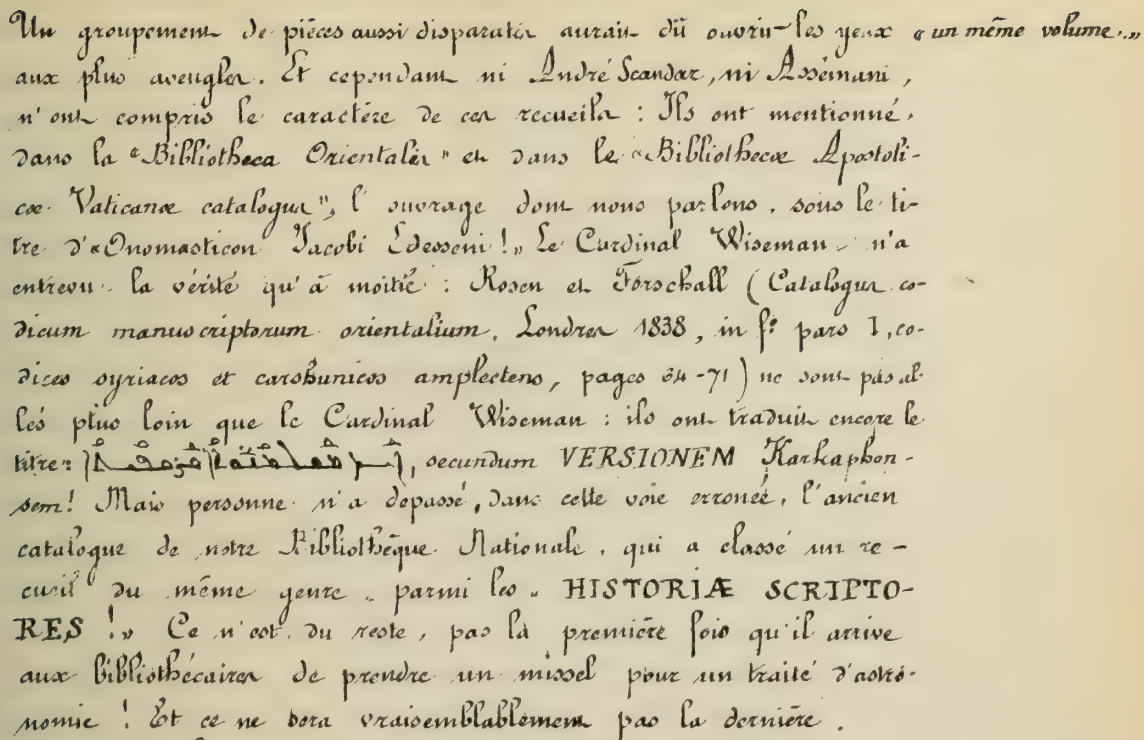 Un groupement de pièces aussi disparates aurait dû ouvrir les yeux « un même volume... »
aux plus aveugles. Et cependant ni André Scandar, ni Assémani,
n'ont compris le caractère de ces recueils : Ils ont mentionné,
dans la "Bibliotheca Orientalis" et dans le «Bibliothecæ Apostoli-
cæ Vaticanæ catalogus", l'ouvrage dont nous parlons, sous le ti-
tre d'«Onomasticon Jacobi Edesseni!» Le Cardinal Wiseman n'a
entrevu la vérité qu'à moitié : Rosen et Forschall (Catalogus co-
dicum manuscriptorum orientalium, Londres 1838, in f° pars I, co-
dices syriacos et carshunicos amplectens, pages 64-71) ne sont pas al-
lés plus loin que le Cardinal Wiseman : ils ont traduit encore le
titre : secundum VERSIONEM Karkaphen-
sem! Mais personne n'a dépassé, dans cette voie erronée, l'ancien
catalogue de notre Bibliothèque Nationale, qui a classé un re-
cueil du même genre parmi les « HISTORIÆ SCRIPTO-
RES !» Ce n'est, du reste, pas la première fois qu'il arrive
aux bibliothécaires de prendre un missel pour un traité d'astro-
nomie ! Et ce ne sera vraisemblablement pas la dernière.